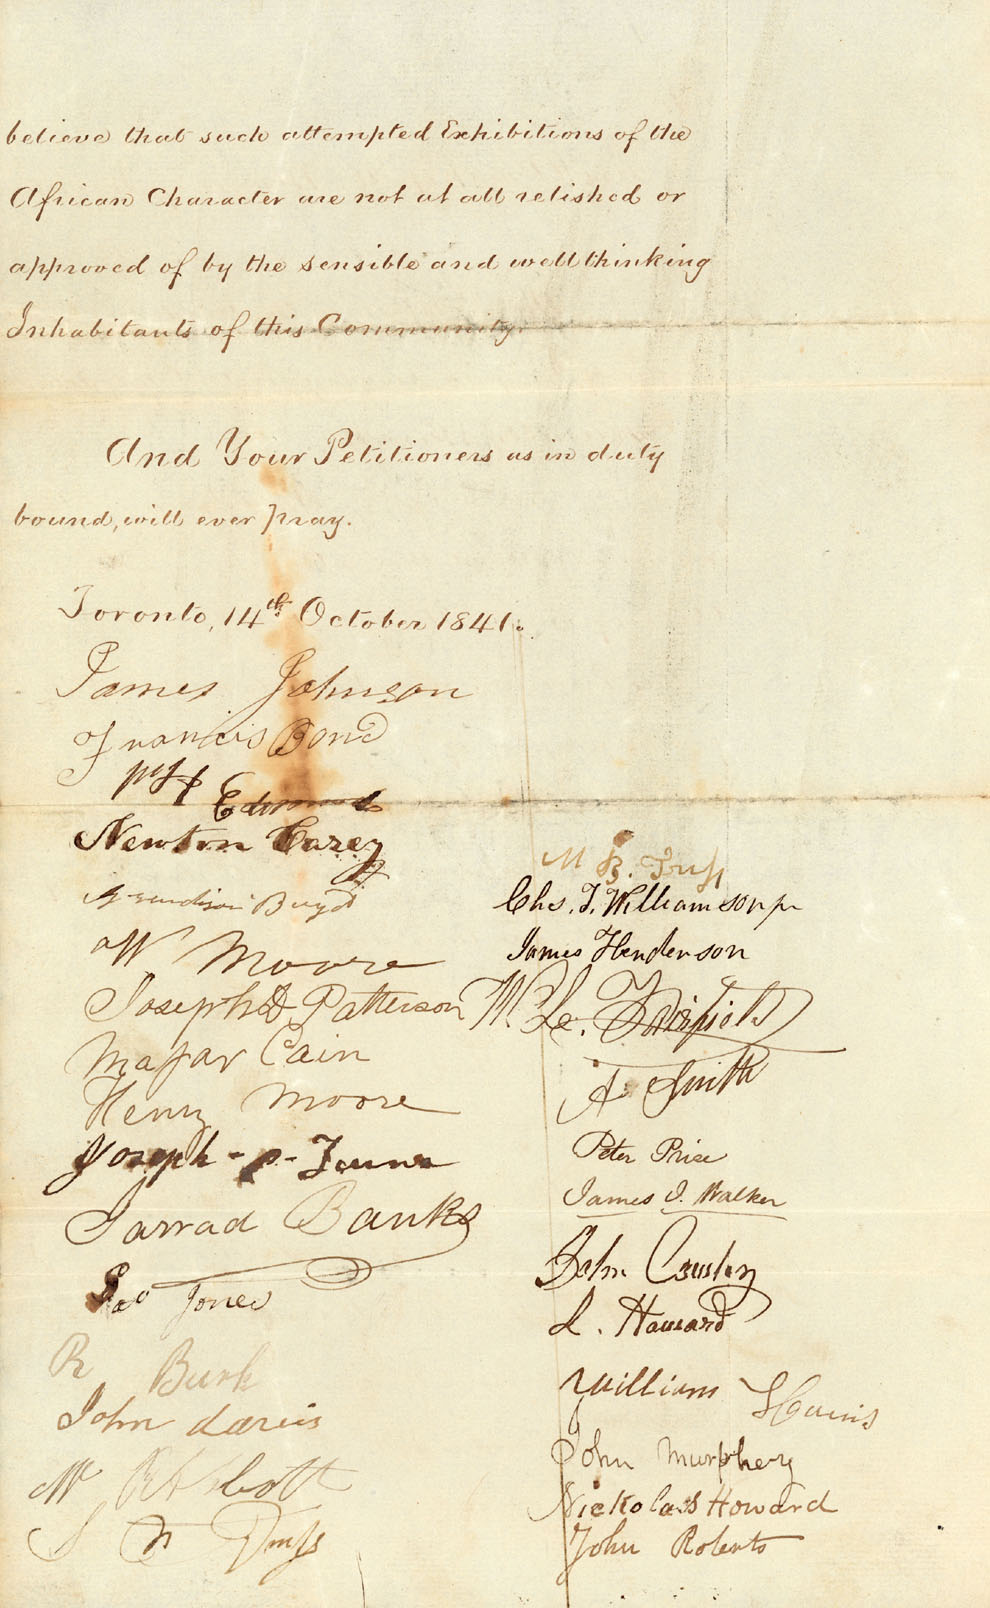 believe that such attempted Exhibitions of the
African Character are not at all relished or
approved of by the sensible and well thinking
Inhabitants of this Community.
And Your Petitioners as in duty
bound, will ever pray.
Toronto, 14th October 1841.
James Johnson
Francis Bond
Edmunds
Newton Carey
W Moore
Joseph D Patterson
Major Cain
Henry Moore
Joseph - P -
Jarrad Banks
Geo Jones
R Burk
John Davis
W R Abbott
S
M B.
Chs. T. Williamson
James Henderson
M. L. Fairfield
A Smith
Peter Price
James J. Walker
John
L. Haward
William
John Murphery
Nickolass Howard
John Roberts